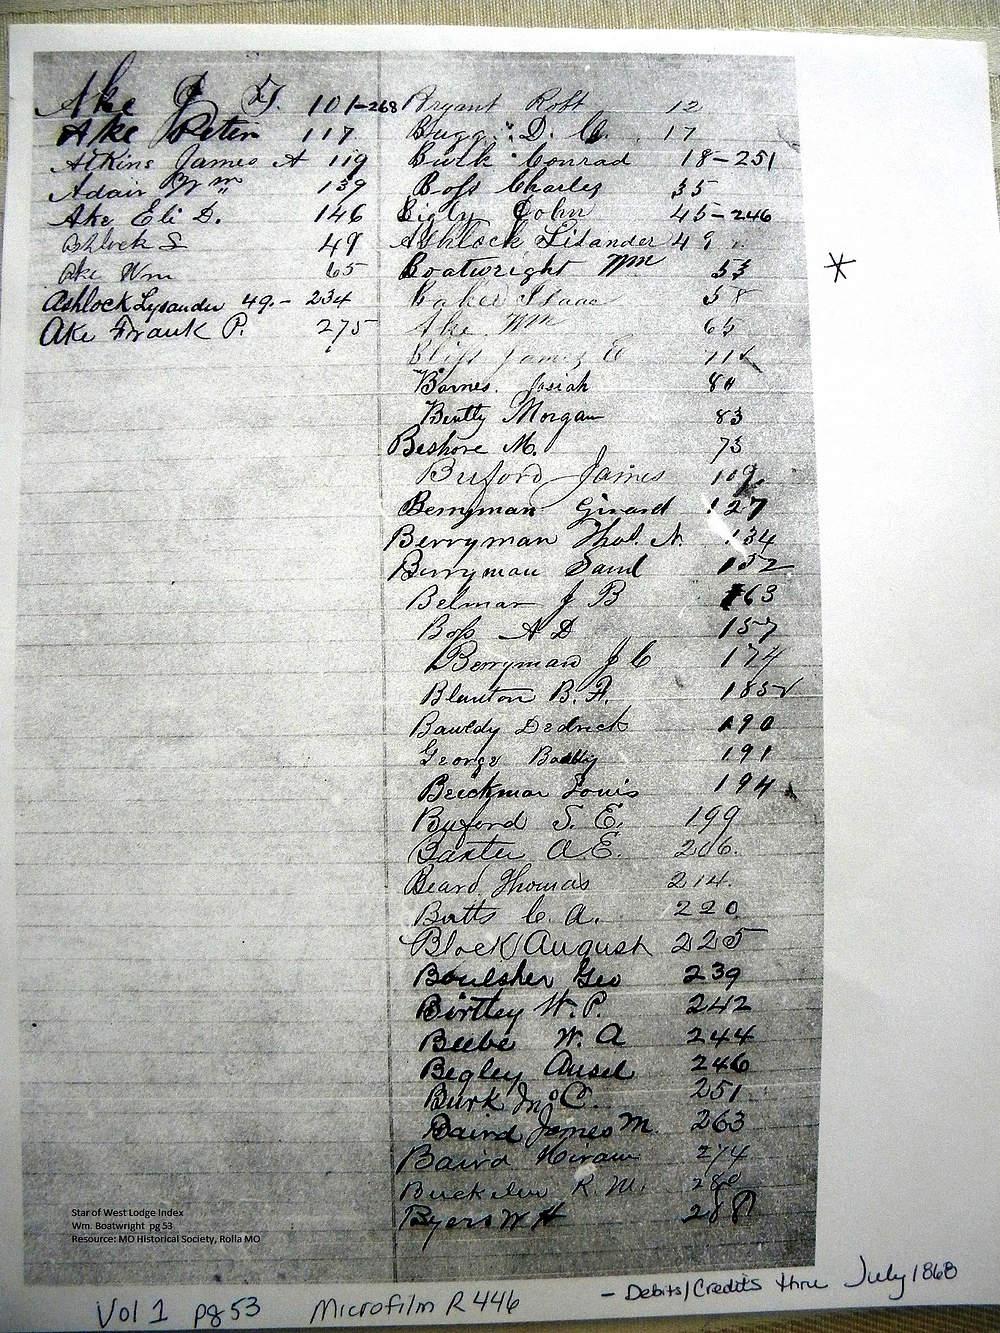 Ake J. G. 101-268
Ake Peter 117
Atkins James A 119
Adair Wm 139
Ake Eli D. 146
Ashlock L 49
Ake Wm 65
Ashlock Lysander 49.- 234
Ake Frank P. 275
Bryant Robt 12
Bugg D. C. 17
Bulk Conrad 18-251
Boss Charles 35
Bigly John 45-246
Ashlock Lisander 49
Boatwright Wm 53
Baker Isaac 58
Ake Wm 65
Bliss James E
Barnes. Josiah 80
Bently Morgan 83
Beshore M. 73
Buford James 109
Berryman Girard 127
Berryman Thos. N. 134
Berryman Saml 152
Belmar J B 163
Boss A D 157
Berryman J C 174
Blanton B. F. 185
Bawldy Dedrick 190
George 191
Beickmar Louis 194
Buford S. E. 199
Baxter A. E. 206.
Beard Thomas 214.
Butts C. A. 220
Block August 225
Boulsher Geo 239
Birtley W. P. 242
Beebe W. A 244
Begley Ansel 246
Burk Jno C. 251
Baird James M. 263
Baird Hiram 274
R. M. 280
Byers W H 288
*
Star of West Lodge Index
Wm. Boatwright pg 53
Resource: MO Historical Society, Rolla MO
Vol 1 pg 53 Microfilm R 446 - Debits/Credits thru July 1868